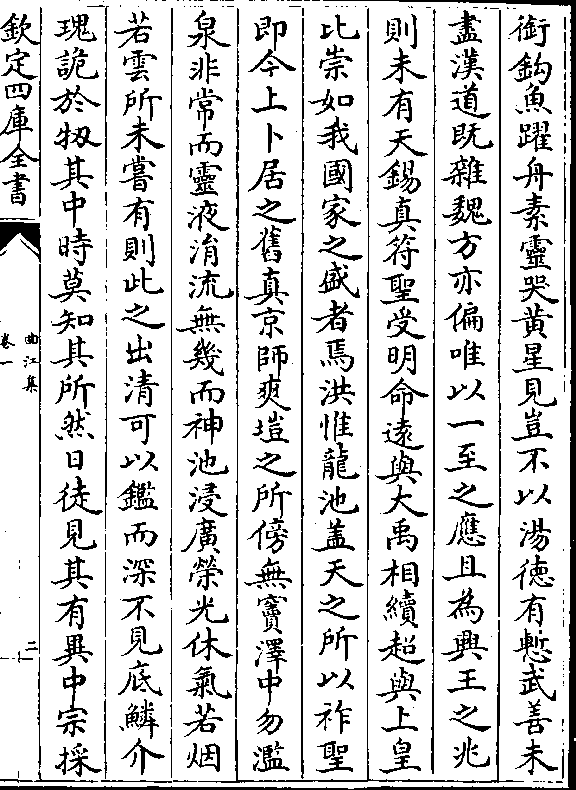 銜鈎魚躍舟素靈哭黄星見豈不以湯徳有慙武善未
盡漢道既雜魏方亦偏唯以一至之應且為興王之兆
則未有天錫真符聖受明命遠與大禹相續超與上皇
比崇如我國家之盛者焉洪惟龍池盖天之所以祚聖
即今上卜居之舊真京師爽塏之所傍無竇澤中勿濫
泉非常而靈液涓流無幾而神池浸廣榮光休氣若烟
若雲所未嘗有則此之出清可以鑑而深不見底鱗介
瑰詭於牣其中時莫知其所然日徒見其有異中宗採
欽定四庫全書
曲江集
卷一
二